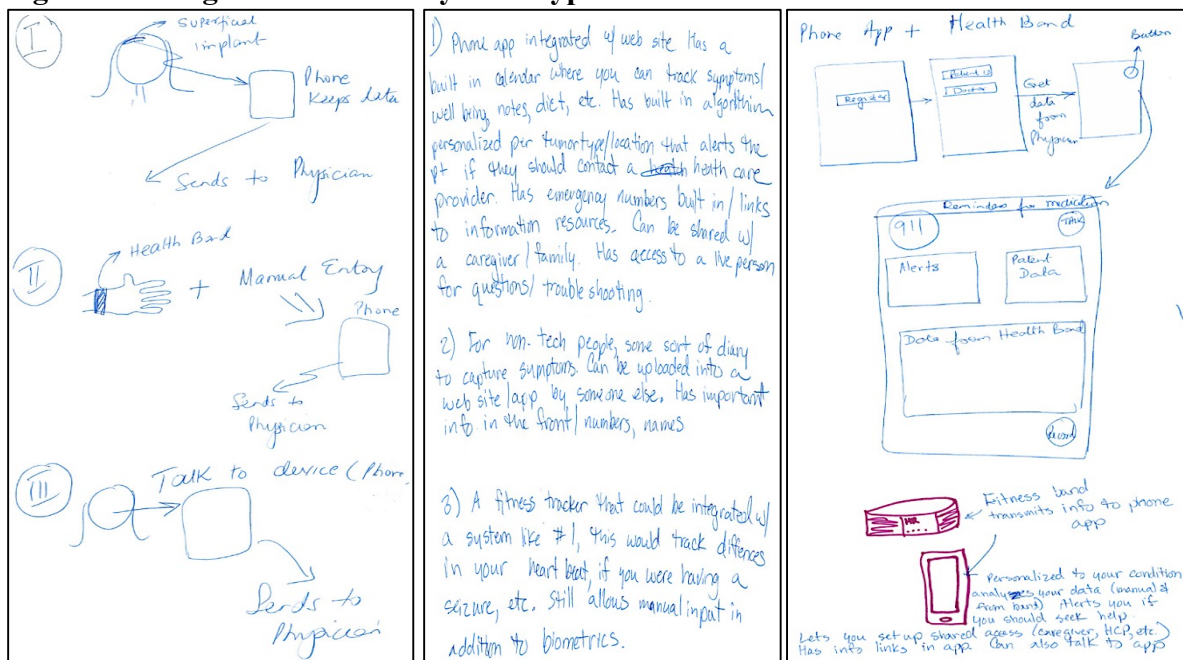 I
Superficial
implant
Phone
Keeps data
Sends to Physician
II
Health Band
+ Manual Entry
Phone
Sends to
Physician
III
Talk to device (Phone
Sends to
Physician
1) Phone app integrated w/ web site Has a
built in calendar where you can track symptoms/
well being, notes, diet, etc. Has built in algorithim
personalized per tumor type/location that alerts the
pt if they should contact a health care
provider. Has emergency numbers built in/links
to information resources. Can be shared w/
a caregiver/family. Has access to a live person
for questions/trouble shooting.
2) For non-tech people, some sort of diary
to capture symptoms. Can be uploaded into a
web site/app by someone else. Has important
info in the front/numbers, names
3) A fitness tracker that could be integrated w/
a system like #1, this would track diffences
in your heart beat, if you were having a
seizure, etc. Still allows manual input in
addition to biometrics.
Phone App + Health Band
Button
Register
Patient ID
Doctor
Get
data
from
Physician
Reminders for medication
911
TALK
Alerts
Patient
Data
Data from Health Band
Record
HR
Fitness band
transmits info to phone
app
Personalized to your condition
analyzes your data (manual &
from band) Alerts you if
you should seek help.
Lets you set up shared access (caregiver, HCP, etc.
Has info links in app. Can also talk to app